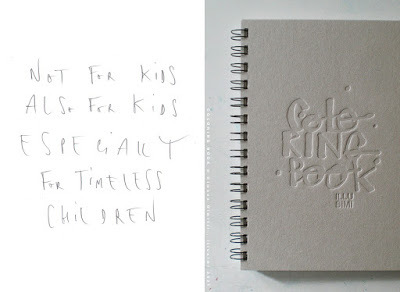 NOT FOR KIDS
ALSO FOR KIDS
ESPECIALLY
FOR TIMELESS
CHILDREN
Colo-
RING
BOOK
ILLU
SIMI